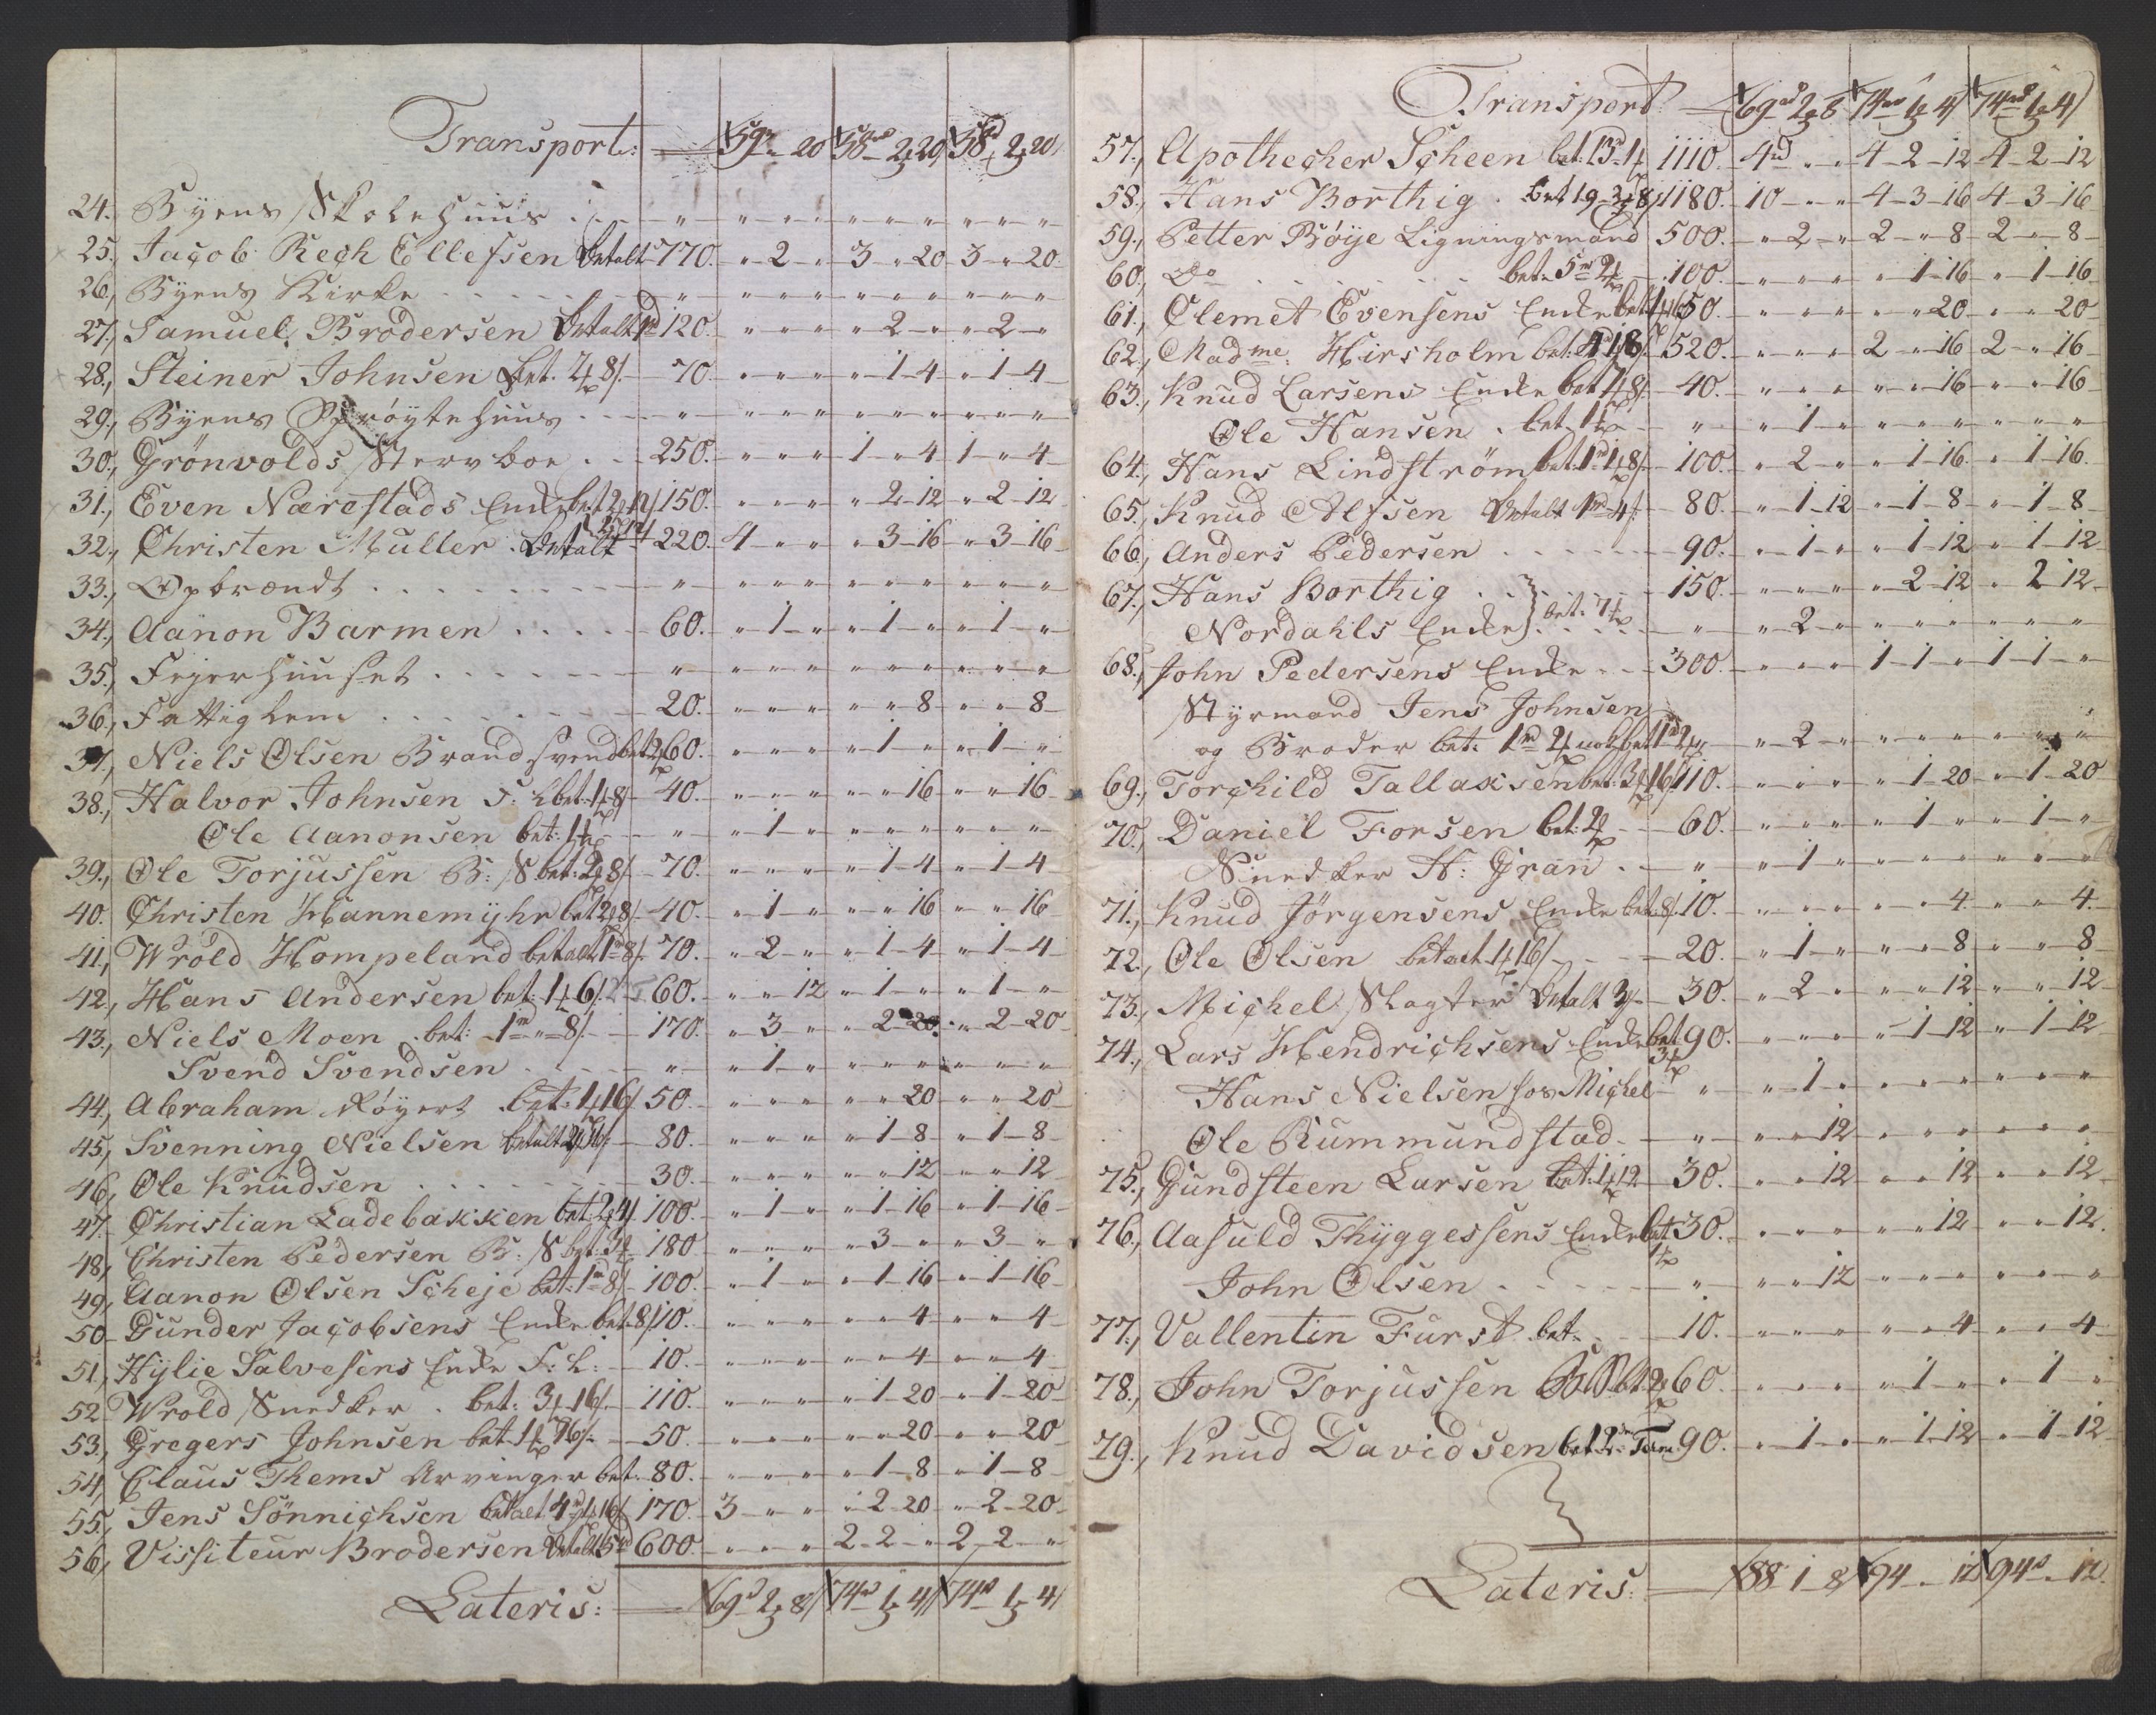 Transport: 59 " 20 58 2 20 58 2 20
24. Byens Skolehuus " " " " " " " " " "
25. Jacob Rech Ellefsen betalt 770. " 2 " 3 " 20 3 " 20
26, Byens Kirke " " " " " " " " " "
27, Samuel Brodersen betalt 1rd 120. " " " " 2 " " 2 "
28, Steiner Johnsen bet. 2 8/ 70 " " " " 1 4 " 1 4
29, Byens Sprøytehuus " " " " " " " " " "
30, Grönvolds Stervboe 250. " " " 1 " 4 1 " 4
31, Even Nærestads Enke bet. 150. " " " " 2 12 " 2 12
32, Christen Muller. Betalt 220. 4 " " " 3 16 " 3 16
33, Opbrændt " " " " " " " " " "
34, Aanon Barmen 60. " 1 " " 1 " " 1 "
35, Fejerhuuset " " " " " " " " " "
36, Fattighem 20. " " " " " 8 " " 8
37, Niels Olsen Brandsvend bet 2 60. " " " " 1 " " 1 "
38, Halvor Johnsen S: bet. 1 8/ 40. " " " " " 16 " " 16
Ole Aanonsen bet: 1 " " 1 " " " " " " "
39, Ole Torjussen B: S bet: 2 8/ 70. " " " " 1 4 " 1 4
40. Christen Hannemyhr bet 2 8/ 40. " 1 " " " 16 " " 16
41, Wrold Hompeland betalt 1 8/ 70. " 2 " " 1 4 " 1 4
42, Hans Andersen bet. 1 6/ 60. " " 12 " 1 " " 1 "
43, Niels Moen. bet: 1rd " 8/ 170. " 3 " " 2 20 " 2 20
Svend Svendsen " " 1 " " " " " " "
44, Abraham Røyert bet: 1 16/ 50. " " " " " 20 " " 20
45, Svenning Nielsen betalt 2 16/ 80. " " " " 1 8 " 1 8
46, Ole Knudsen 30. " " " " " 12 " " 12
47. Christian Ladebakken bet 2 4/ 100. " 1 " " 1 16 " 1 16
48, Christen Pedersen B: S bet: 3 180. " " " " 3 " " 3 "
49, Aanon Olsen Scheje bet: 1 8/ 100. " 1 " " 1 16 " 1 16
50 Gunder Jacobsens Enke bet. 8/ 10. " " " " " 4 " " 4
51, Hylie Salvesens Enke F: L: 10. " " " " " 4 " " 4
52 Wrold Snedker. bet: 3 16/ 110. " " " " 1 20 " 1 20
53, Gregers Johnsen bet. 1 16/ 50. " " " " " 20 " " 20
54, Claus Thems Arvinger bet. 80. " " " " 1 8 " 1 8
55, Jens Sönnichsen betalt 4 1 16/ 170. 3 " " " 2 20 " 2 20
56, Vissiteur Brodersen betalt 5 600. " " " 2 2 " 2 2 "
Lateris: 69 2 8/ 74 1 4/ 74 1 4/
Transport 69 2 8 74 1 4/ 74 1 4/
57, Apothecher Scheen bet: 13 1 1110. 4rd " " 4 2 12 4 2 12
58, Hans Borthig. bet 19 3 8/ 1180. 10 " " 4 3 16 4 3 16
59, Petter Böije Ligningsmand 500. " 2 " 2 " 8 2 " 8
60, Do bet: 5 2 100. " " " " 1 16 " 1 16
61, Clemet Evensens Enke bet 1 16 50. " " " " " 20 " " 20
62, Madme: Hirsholm bet: 4 1 8/ 520. " " " 2 " 16 2 " 16
63, Knud Larsens Enke bet 1 8/ 40. " " " " " 16 " " 16
Ole Hansen. bet. 1 " " 1 " " " " " " "
64, Hans Lindström bet. 1 1 8/ 100. " 2 " " 1 16 " 1 16
65, Knud Alfsen betalt 1 4/ 80. " 1 12 " 1 8 " 1 8
66, Anders Pedersen 90. " 1 " " 1 12 " 1 12
67, Hans Borthig 150. " " " " 2 12 " 2 12
Nordahls Enke bet: 7 " " 2 " " " " " " "
68, John Pedersens Enke 300. " " " 1 1 " 1 1 "
Styrmand Jens Johnsen
og Broder bet: 1rd 2 nok bet 1 2 " 2 " " " " " " "
69, Torchild Tallaksen bet: 3 16/ 110. " " " " 1 20 " 1 20
70, Daniel Forsen bet: 2 60. " " " " 1 " " 1 "
Snedker H: Gran " " 1 " " " " " " "
71, Knud Jörgensens Enke bet: 8/ 10. " " " " " 4 " " 4
72, Ole Olsen betalt 1 16/ 20. " 1 " " " 8 " " 8
73, Michel Slagter betalt 3 30. " 2 " " " 12 " " 12
74, Lars Hendrichsens Enke bet 3 90. " " " " 1 12 " 1 12
Hans Nielsen hos Michel " " 1 " " " " " " "
Ole Rummundstad " " " 12 " " " " " "
75, Gundsteen Larsen bet: 1 12 30. " " 12 " " 12 " " 12
76, Aasuld Thyggessens Enke bet 1 30. " " " " " 12 " " 12.
John Olsen " " " 12 " " " " " "
77, Vallentin Furst bet. 10. " " " " " 4 " " 4
78, John Torjussen B S bt: 2 60. " " " " 1 " " 1 "
79, Knud Davidsen bet 2 90. " 1 " " 1 12 " 1 12
Lateris: 88 1 8 94 " 12 94 " 12.